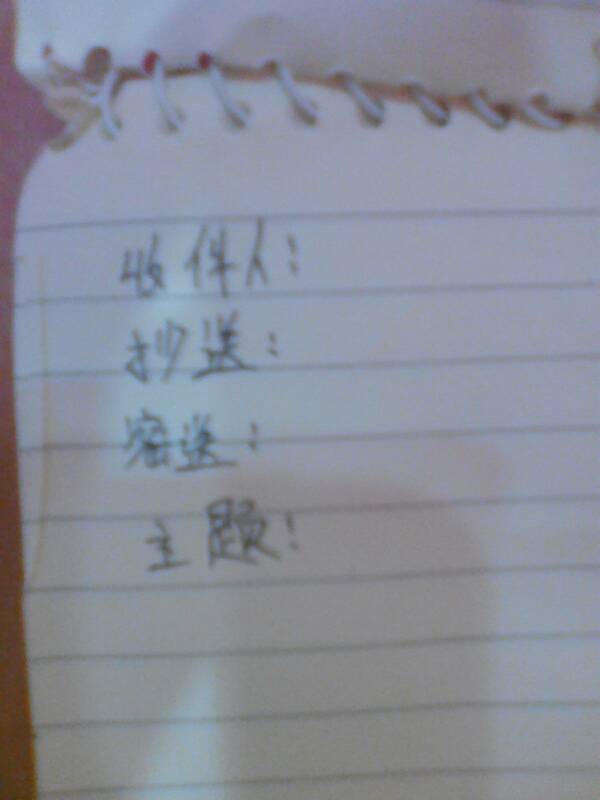 收件人：
抄送：
密送：
主题：